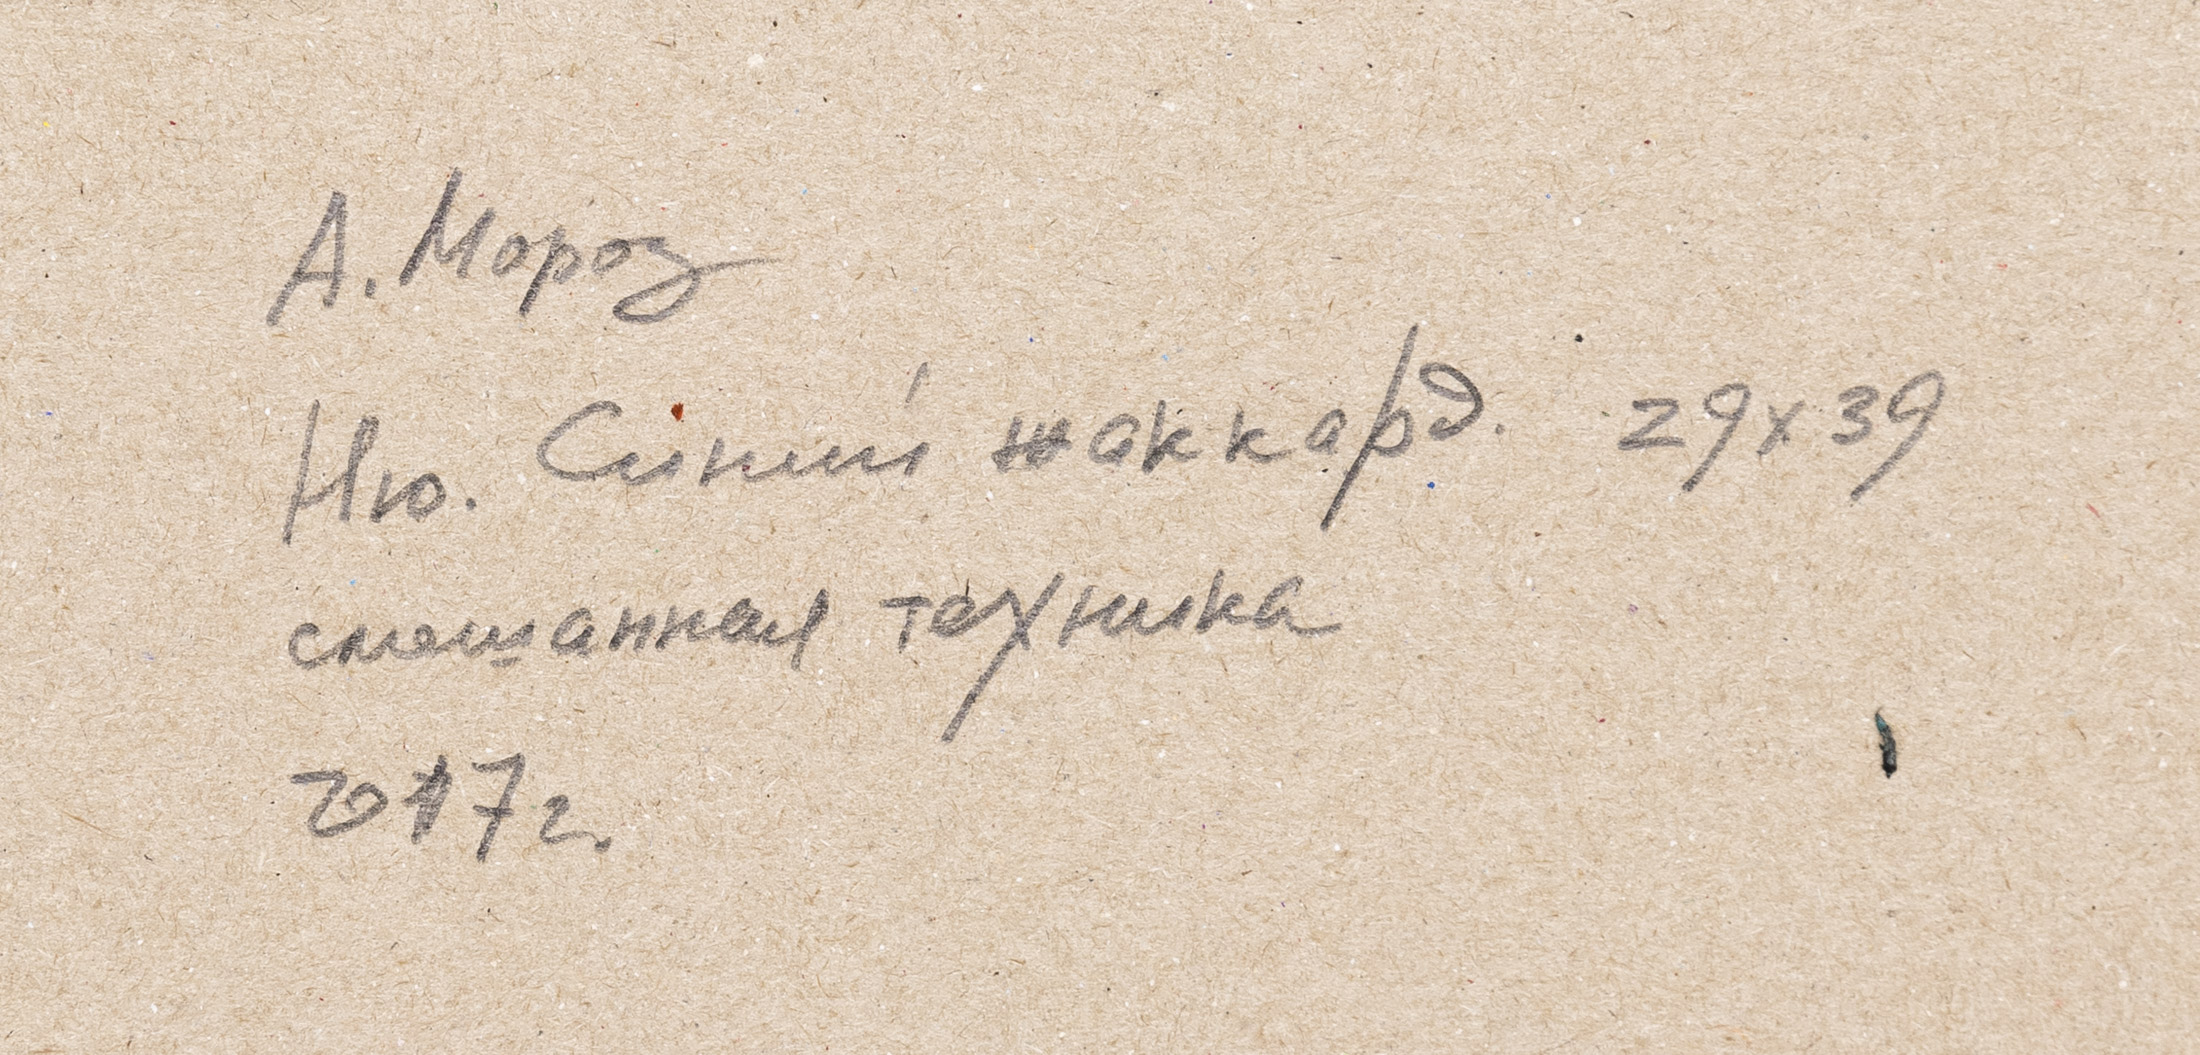 А. Мороз
Ню. Синий жаккард. 29х39
смешанная техника
2017г.